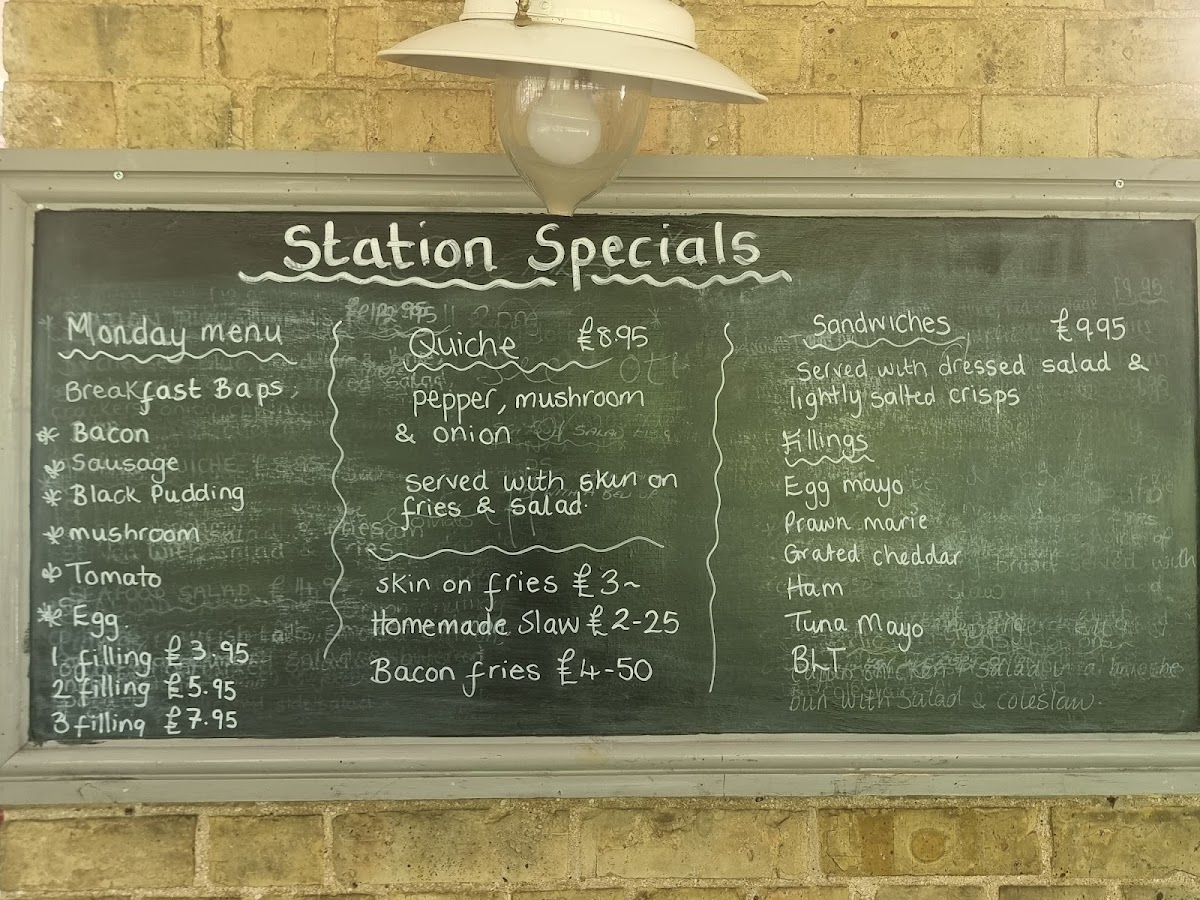 Station Specials
Monday menu
Breakfast Baps,
* Bacon
* Sausage
* Black Pudding
* mushroom
* Tomato
* Egg.
1 filling £3.95
2 filling £5.95
3 filling £7.95
Quiche £8.95
pepper, mushroom
& onion
served with skin on
fries & salad.
skin on fries £3~
Homemade Slaw £2-25
Bacon fries £4-50
Sandwiches £9.95
served with dressed salad &
lightly salted crisps
Fillings
Egg mayo
Prawn marie
Grated cheddar
Ham
Tuna Mayo
BLT
bun with salad & coleslaw.